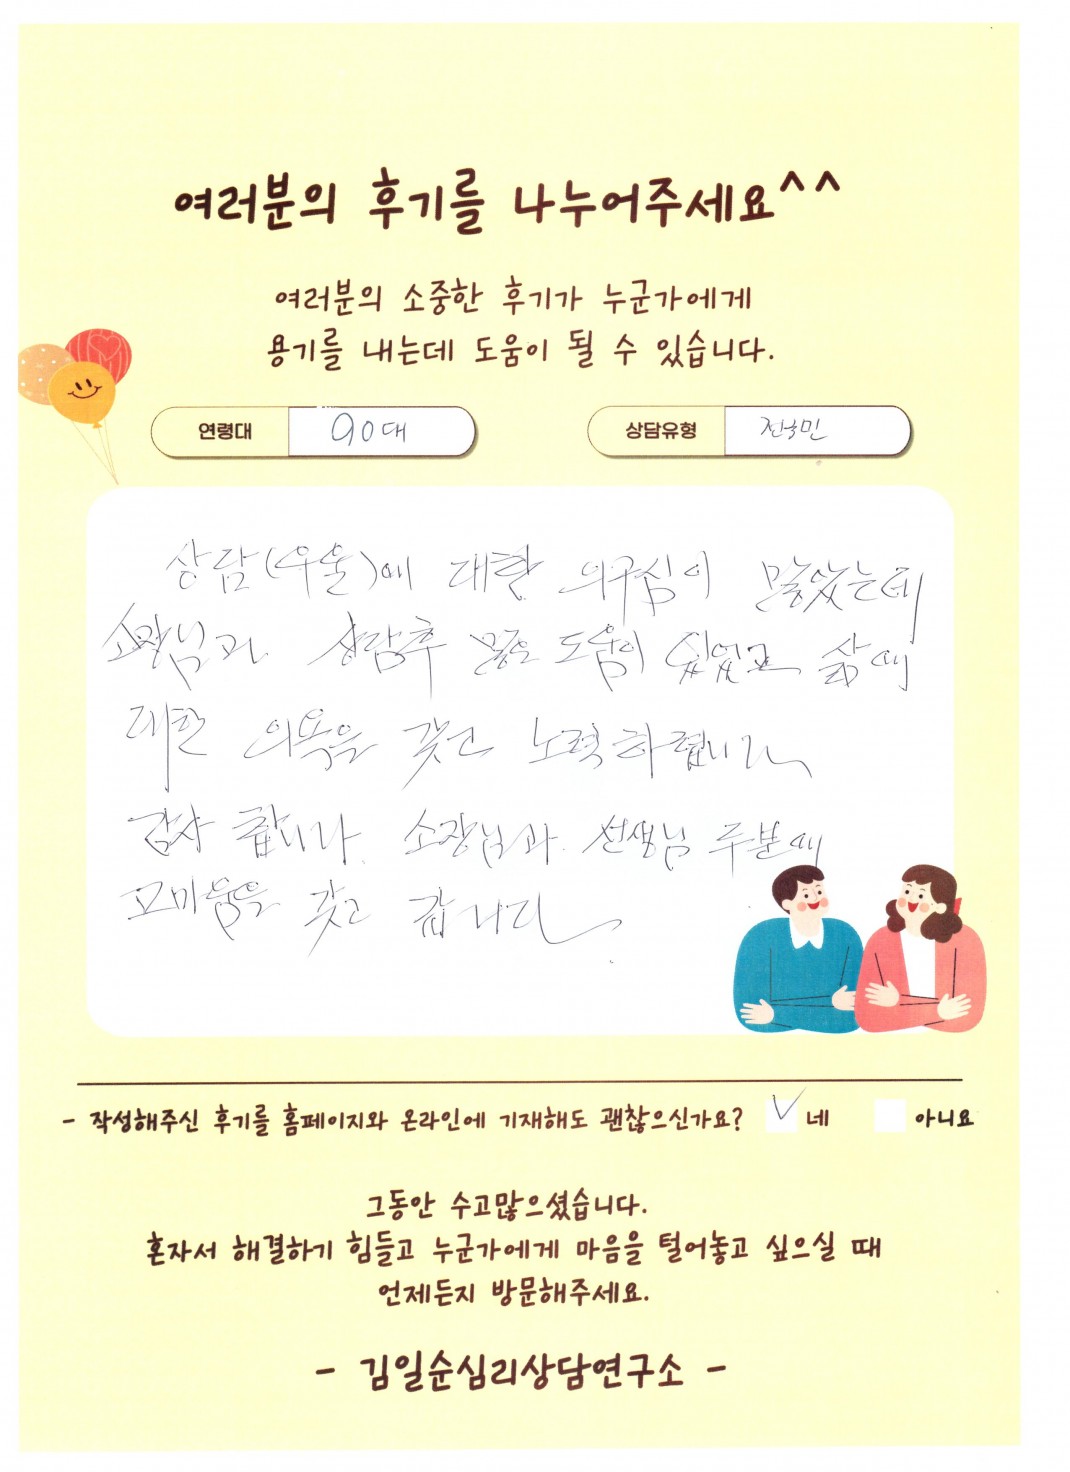 여러분의 후기를 나누어주세요^^
여러분의 소중한 후기가 누군가에게
용기를 내는데 도움이 될 수 있습니다.
연령대 90대 상담유형 전국민
상담(우울)에 대한 의구심이 많았는데
소장님과 상담후 많은 도움이 있었고 삶에
대한 의욕을 갖고 노력하렵니다
감사 합니다. 소장님과 선생님 두분에
고마움을 갖고 갑니다.
- 작성해주신 후기를 홈페이지와 온라인에 기재해도 괜찮으신가요? ✓ 네 아니요
그동안 수고많으셨습니다.
혼자서 해결하기 힘들고 누군가에게 마음을 털어놓고 싶으실 때
언제든지 방문해주세요.
- 김일순심리상담연구소 -